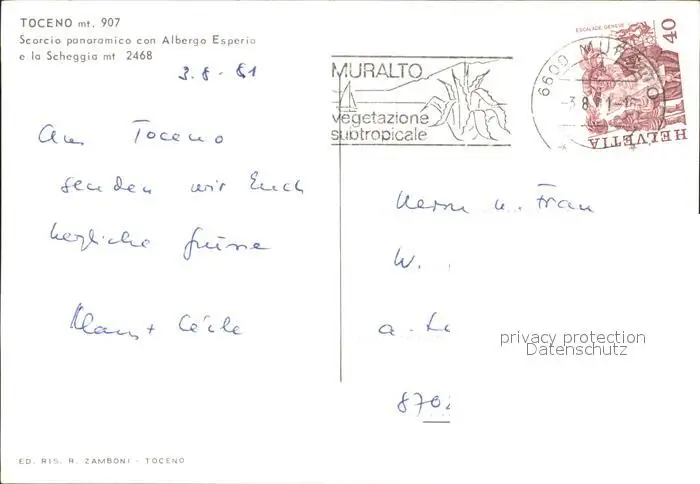 TOCENO mt. 907
Scorcio panoramico con Albergo Esperia
e la Scheggia mt 2468
3.8.81
Aus Toceno
senden wir Euch
herzliche Grüsse
Klaus + Cécile
MURALTO
vegetazione
subtropicale
6600 MURALTO
-3.8.81-
ESCALADE GENÈVE
40
HELVETIA
Herrn u. Frau
W.
a.
8702
privacy protection
Datenschutz
ED. RIS. R. ZAMBONI - TOCENO